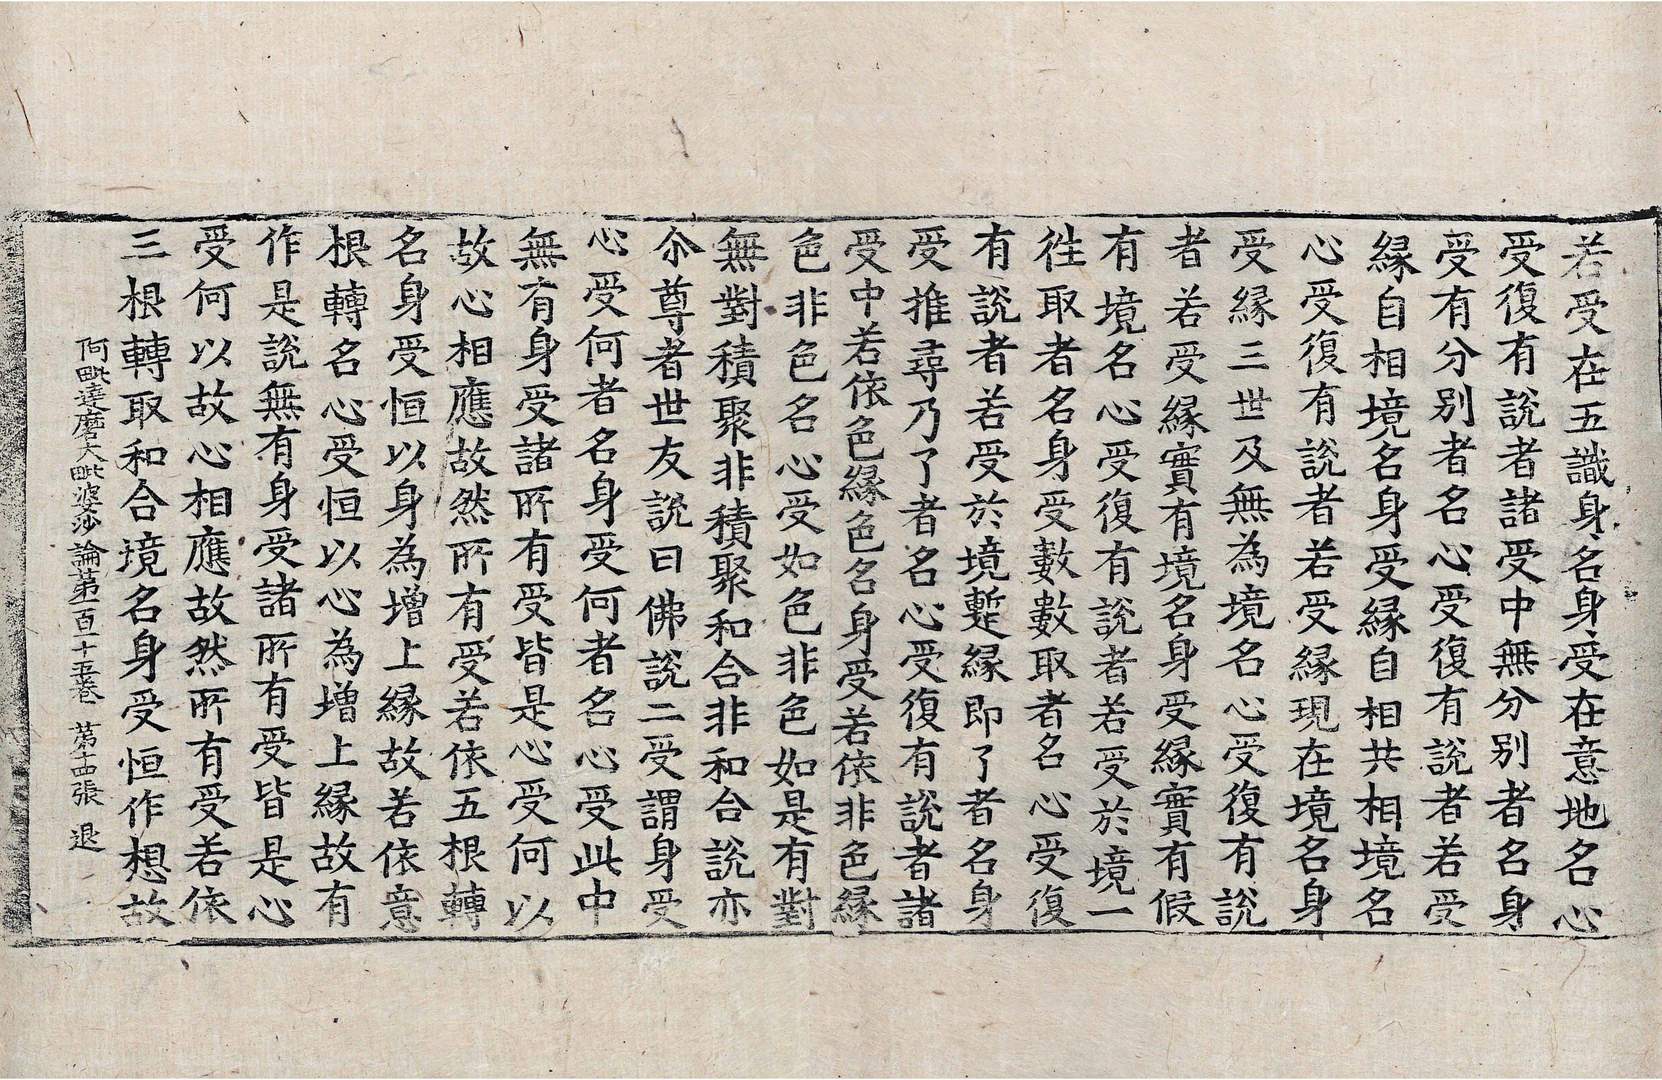 若受在五識身名身受在意地名心
受復有說者諸受中無分別者名身
受有分別者名心受復有說者若受
緣自相境名身受緣自相共相境名
心受復有說者若受緣現在境名身
受緣三世及無為境名心受復有說
者若受緣實有境名身受緣實有假
有境名心受復有說者若受於境一
往取者名身受數數取者名心受復
有說者若受於境蹔緣即了者名身
受推尋乃了者名心受復有說者諸
受中若依色緣色名身受若依非色緣
色非色名心受如色非色如是有對
無對積聚非積聚和合非和合說亦
尒尊者世友說曰佛說二受謂身受
心受何者名身受何者名心受此中
無有身受諸所有受皆是心受何以
故心相應故然所有受若依五根轉
名身受恒以身為增上緣故若依意
根轉名心受恒以心為增上緣故有
作是說無有身受諸所有受皆是心
受何以故心相應故然所有受若依
三根轉取和合境名身受恒作想故
阿毗達磨大毗婆沙論第一百一十五卷 第十四張 退